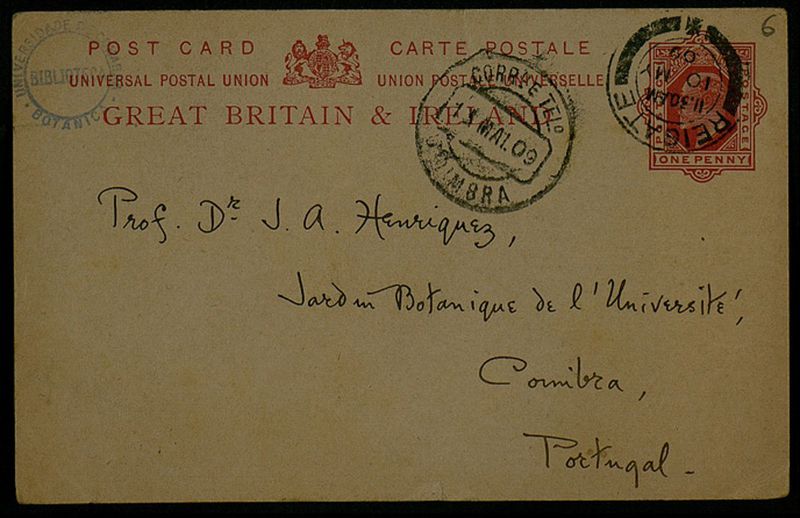 POST CARD CARTE POSTALE
UNIVERSAL POSTAL UNION UNION POSTALE UNIVERSELLE
GREAT BRITAIN & IRELAND
BIBLIOTECA
CORRO E TELO
13 MAI. 09
COIMBRA
REIGATE
11.30 AM
10 MY
09
POSTAGE
ONE PENNY
6
Prof. Dr. J. A. Henriquez,
Jardin Botanique de l'Université,
Coimbra,
Portugal -